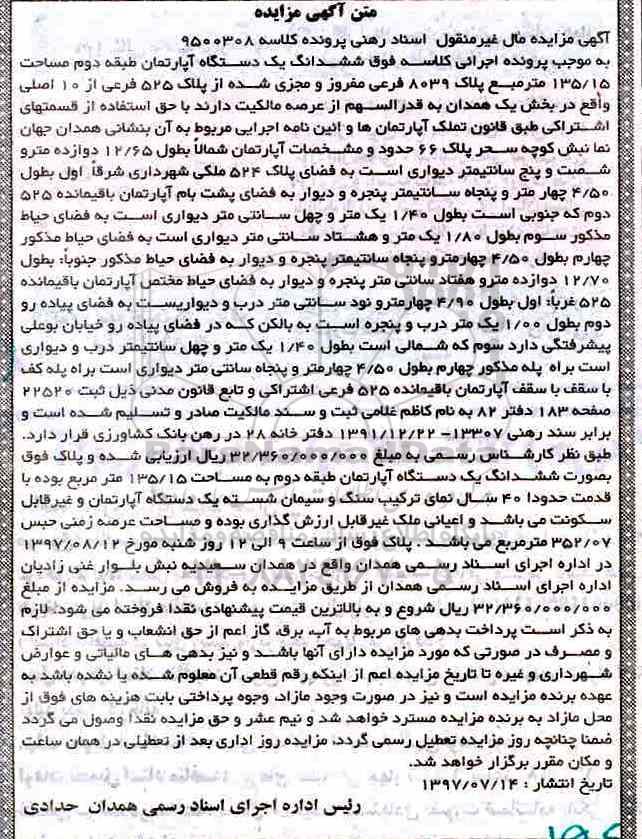 متن آگهی مزایده
آگهی مزایده مال غیرمنقول اسناد رهنی پرونده کلاسه ۹۵۰۰۳۰۸
به موجب پرونده اجرائی کلاسه فوق ششدانگ یک دستگاه آپارتمان طبقه دوم مساحت
۱۳۵/۱۵ مترمربع پلاک ۸۰۳۹ فرعی مفروز و مجزی شده از پلاک ۵۲۵ فرعی از ۱۰ اصلی
واقع در بخش یک همدان به قدرالسهم از عرصه مالکیت دارند با حق استفاده از قسمتهای
اشتراکی طبق قانون تملک آپارتمان ها و ائین نامه اجرایی مربوط به آن بنشانی همدان جهان
نما نبش کوچه سحر پلاک ۶۶ حدود و مشخصات آپارتمان شمالاً بطول ۱۲/۶۵ دوازده مترو
شصت و پنج سانتیمتر دیواری است به فضای پلاک ۵۲۴ ملکی شهرداری شرقاً اول بطول
۴/۵۰ چهار متر و پنجاه سانتیمتر پنجره و دیوار به فضای پشت بام آپارتمان باقیمانده ۵۲۵
دوم که جنوبی است بطول ۱/۴۰ یک متر و چهل سانتی متر دیواری است به فضای حیاط
مذکور سوم بطول ۱/۸۰ یک متر و هشتاد سانتی متر دیواری است به فضای حیاط مذکور
چهارم بطول ۴/۵۰ چهارمترو پنجاه سانتیمتر پنجره و دیوار به فضای حیاط مذکور جنوباً: بطول
۱۲/۷۰ دوازده مترو هفتاد سانتی متر پنجره و دیوار به فضای حیاط مختص آپارتمان باقیمانده
۵۲۵ غرباً: اول بطول ۴/۹۰ چهارمترو نود سانتی متر درب و دیواریست به فضای پیاده رو
دوم بطول ۱/۰۰ یک متر درب و پنجره است به بالکن که در فضای پیاده رو خیابان بوعلی
پیشرفتگی دارد سوم که شمالی است بطول ۱/۴۰ یک متر و چهل سانتیمتر درب و دیواری
است براه پله مذکور چهارم بطول ۴/۵۰ چهارمتر و پنجاه سانتی متر دیواری است براه پله کف
با سقف با سقف آپارتمان باقیمانده ۵۲۵ فرعی اشتراکی و تابع قانون مدنی ذیل ثبت ۲۲۵۲۰
صفحه ۱۸۳ دفتر ۸۲ به نام کاظم غلامی ثبت و سند مالکیت صادر و تسلیم شده است و
برابر سند رهنی ۱۳۳۰۷- ۱۳۹۱/۱۲/۲۲ دفتر خانه ۲۸ در رهن بانک کشاورزی قرار دارد.
طبق نظر کارشناس رسمی به مبلغ ۳۲/۳۶۰/۰۰۰/۰۰۰ ریال ارزیابی شده و پلاک فوق
بصورت ششدانگ یک دستگاه آپارتمان طبقه دوم به مساحت ۱۳۵/۱۵ متر مربع بوده با
قدمت حدودا ۴۰ سال نمای ترکیب سنگ و سیمان شسته یک دستگاه آپارتمان و غیرقابل
سکونت می باشد و اعیانی ملک غیرقابل ارزش گذاری بوده و مساحت عرصه زمنی حبس
۳۵۲/۰۷ مترمربع می باشد . پلاک فوق از ساعت ۹ الی ۱۲ روز شنبه مورخ ۱۳۹۷/۰۸/۱۲
در اداره اجرای اسناد رسمی همدان واقع در همدان سعیدیه نبش بلوار غنی زادیان
اداره اجرای اسناد رسمی همدان از طریق مزایده به فروش می رسد. مزایده از مبلغ
۳۲/۳۶۰/۰۰۰/۰۰۰ ریال شروع و به بالاترین قیمت پیشنهادی نقدا فروخته می شود: لازم
به ذکر است پرداخت بدهی های مربوط به آب، برق، گاز اعم از حق انشعاب و یا حق اشتراک
و مصرف در صورتی که مورد مزایده دارای آنها باشد و نیز بدهی های مالیاتی و عوارض
شهرداری و غیره تا تاریخ مزایده اعم از اینکه رقم قطعی آن معلوم شده یا نشده باشد به
عهده برنده مزایده است و نیز در صورت وجود مازاد، وجوه پرداختی بابت هزینه های فوق از
محل مازاد به برنده مزایده مسترد خواهد شد و نیم عشر و حق مزایده نقدا وصول می گردد
ضمنا چنانچه روز مزایده تعطیل رسمی گردد، مزایده روز اداری بعد از تعطیلی در همان ساعت
و مکان مقرر برگزار خواهد شد.
تاریخ انتشار : ۱۳۹۷/۰۷/۱۴
رئیس اداره اجرای اسناد رسمی همدان حدادی